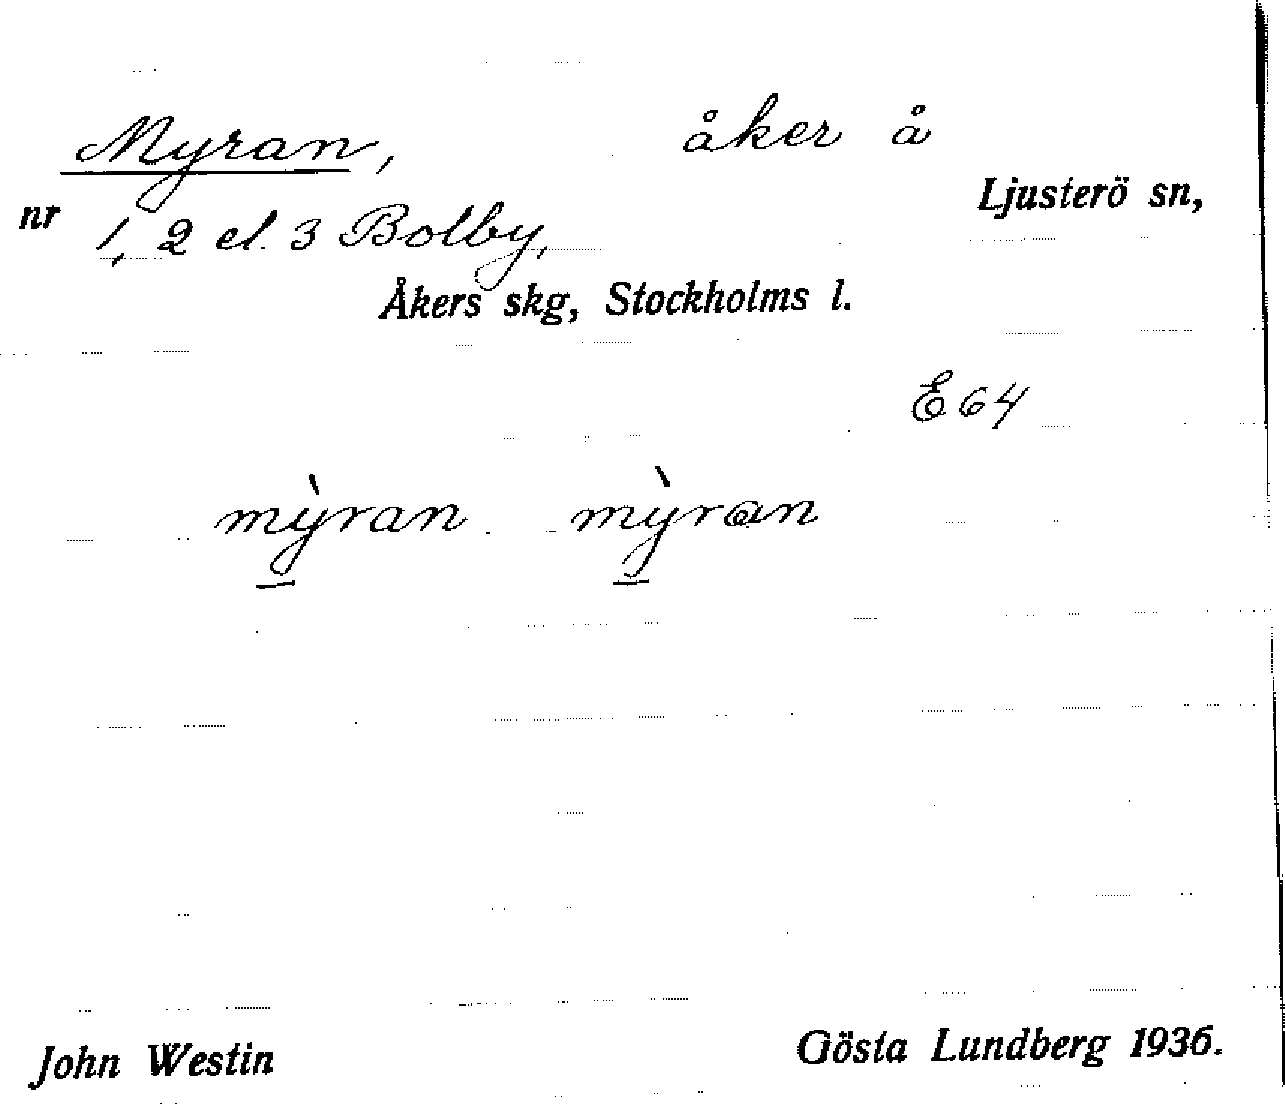 Myran, åker å
Ljusterö sn,
nr 1, 2 el. 3 Bolby,
Åkers skg, Stockholms l.
E 64
mỳran mỳran
John Westin Gösta Lundberg 1936.